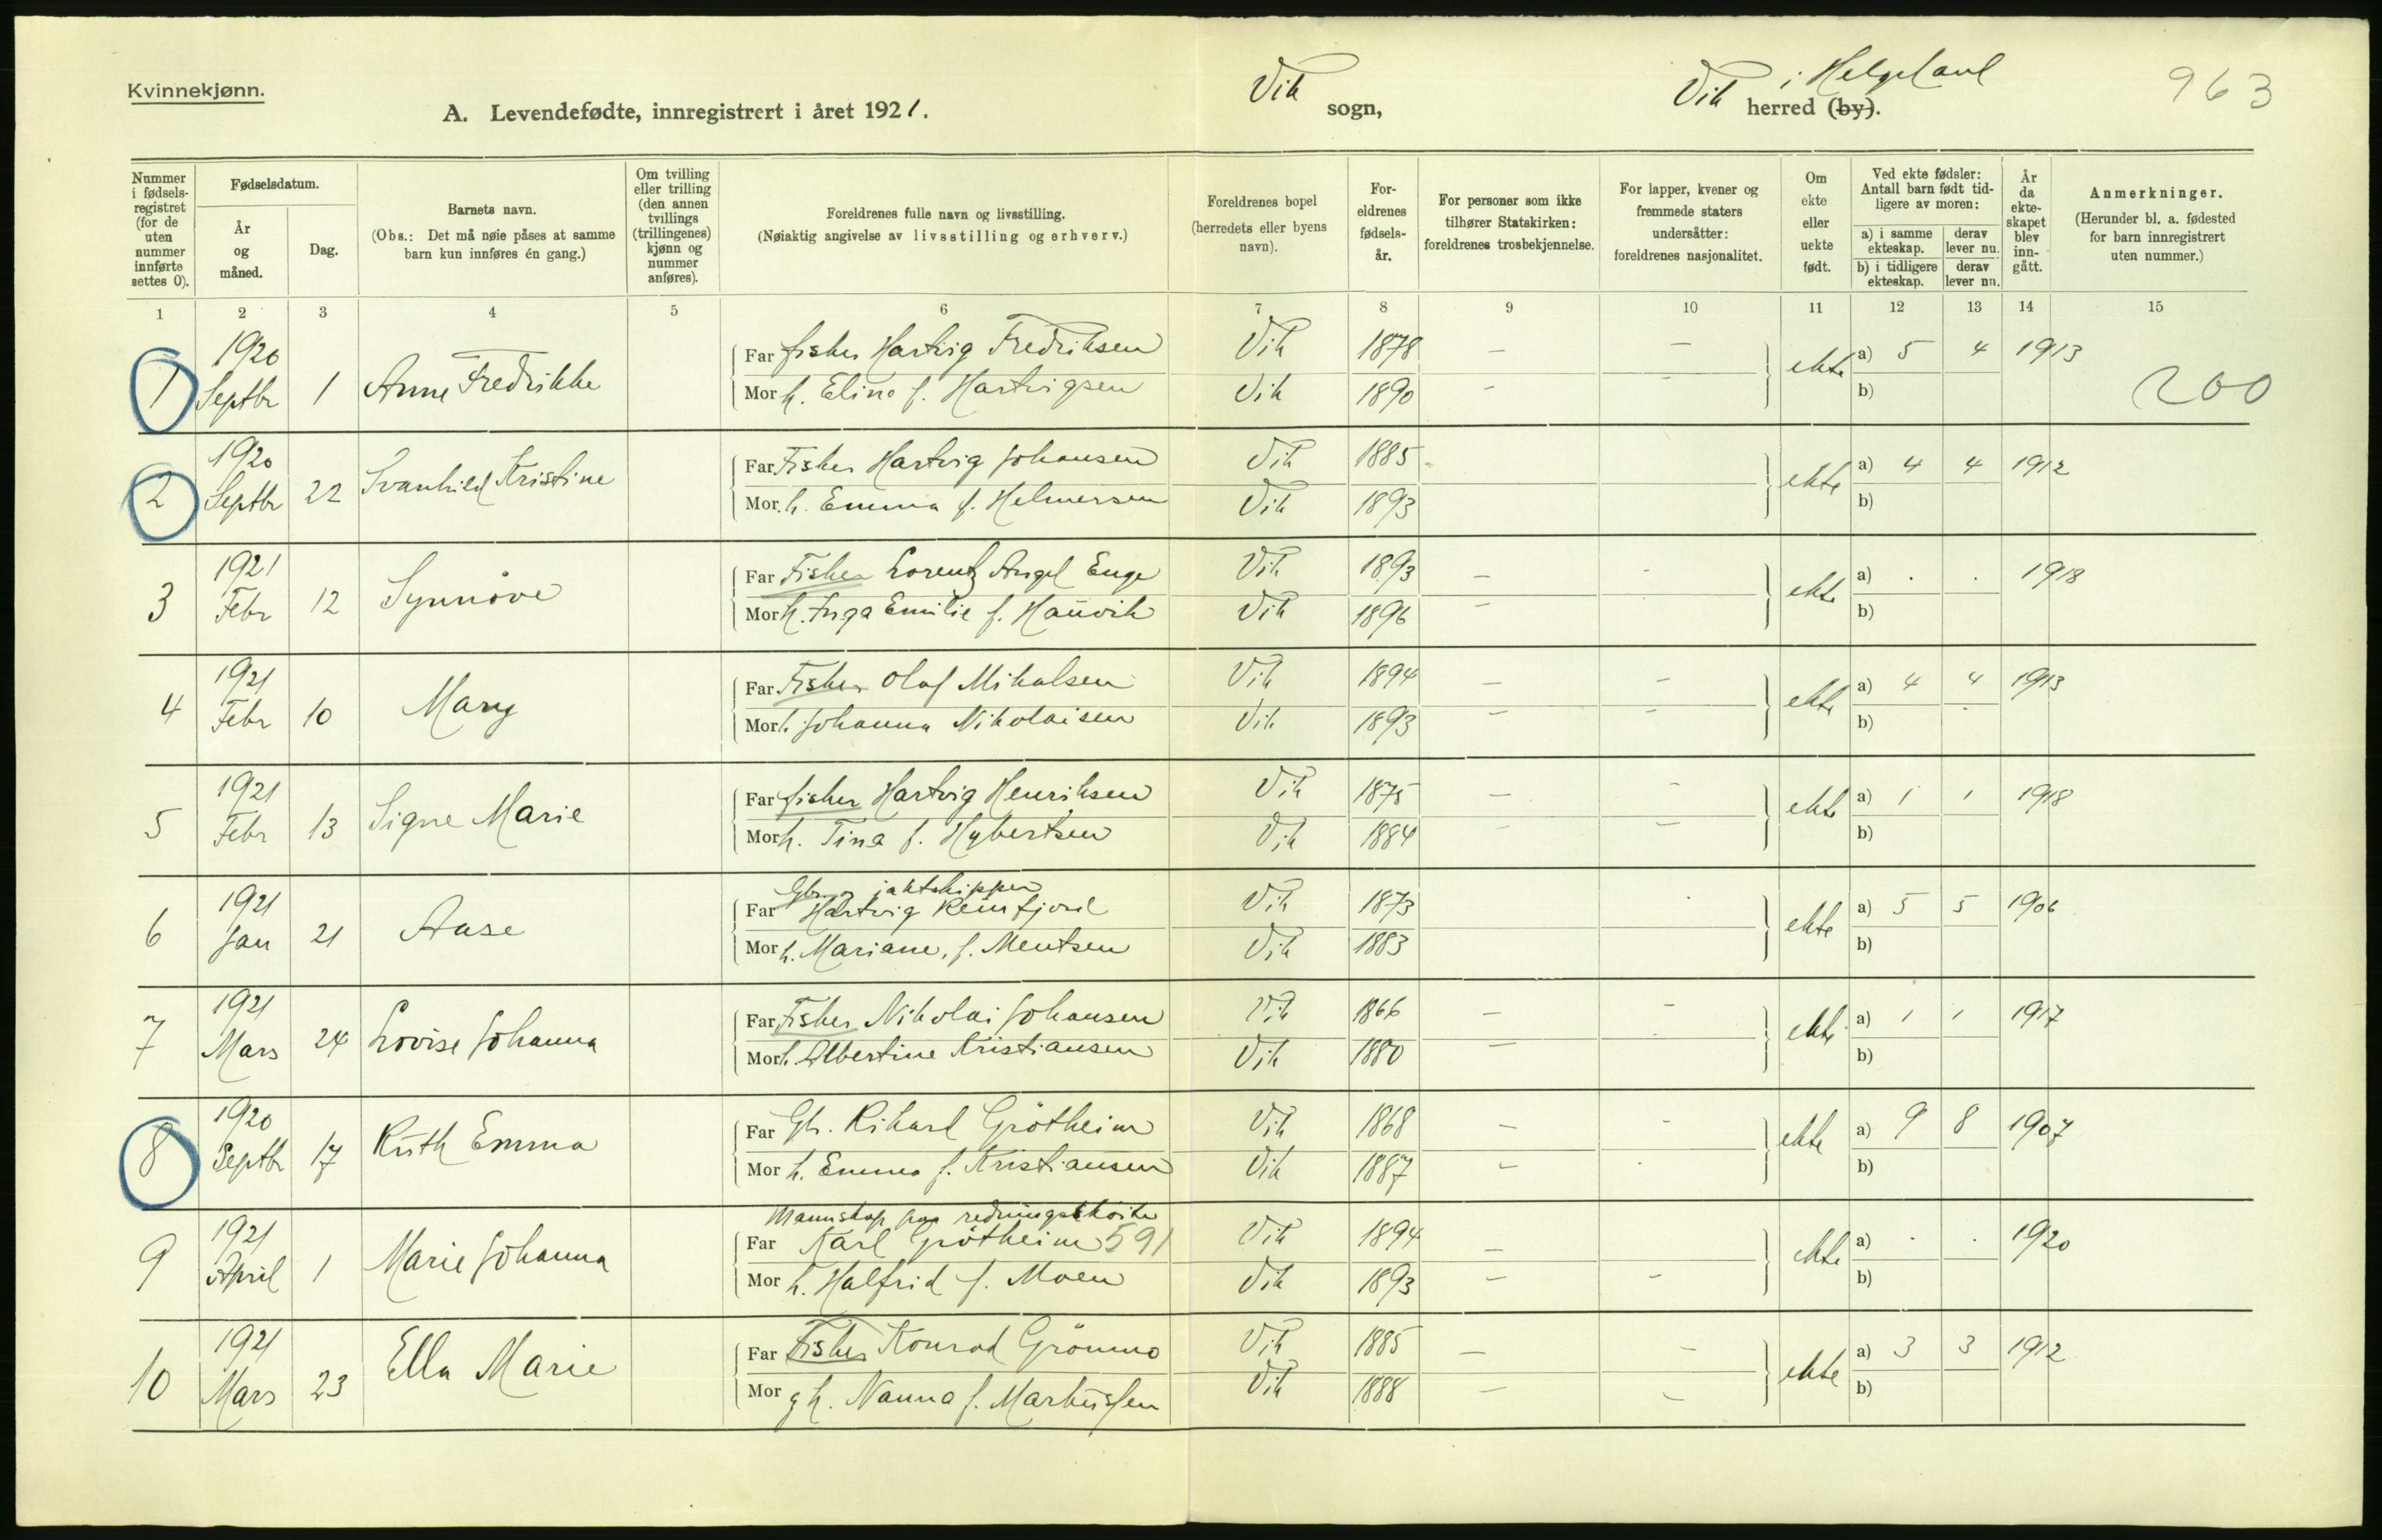 Kvinnekjønn.
A. Levendefødte, innregistrert i året 1921.
Vik sogn,
Vik i Helgeland herred (by).
963
Nummer i fødsels-registret (for de uten nummer innførte settes 0).
Fødselsdatum.
År og måned.
Dag.
Barnets navn.
(Obs.: Det må nøie påses at samme barn kun innføres én gang.)
Om tvilling eller trilling (den annen tvillings (trillingenes) kjønn og nummer anføres).
Foreldrenes fulle navn og livsstilling.
(Nøiaktig angivelse av livsstilling og erhverv.)
Foreldrenes bopel (herredets eller byens navn).
For-eldrenes fødsels-år.
For personer som ikke tilhører Statskirken: foreldrenes trosbekjennelse.
For lapper, kvener og fremmede staters undersåtter: foreldrenes nasjonalitet.
Om ekte eller uekte født.
Ved ekte fødsler: Antall barn født tid-ligere av moren:
a) i samme ekteskap. derav lever nu.
b) i tidligere ekteskap. derav lever nu.
År da ekte-skapet blev inn-gått.
Anmerkninger.
(Herunder bl. a. fødested for barn innregistrert uten nummer.)
1 2 3 4 5 6 7 8 9 10 11 12 13 14 15
1 1920 Septbr 1 Anne Fredrikke
Far fisker Hartvig Fredriksen Vik 1878 — — ekte a) 5 4 1913
Mor h. Eline f. Hartvigsen Vik 1890 — — b)
200
2 1920 Septbr 22 Svanhild Kristine
Far Fisker Hartvig Johansen Vik 1885 ekte a) 4 4 1912
Mor h. Emma f. Helmersen Vik 1893 b)
3 1921 Febr 12 Synnöve
Far Fisker Lorentz Angel Enge Vik 1893 — - ekte a) . . 1918
Mor h. Inga Emilie f. Haüvik Vik 1896 — b)
4 1921 Febr 10 Mary
Far Fisker Olaf Mikalsen Vik 1894 — — ekte a) 4 4 1913
Mor h. Johanna Nikolaisen Vik 1893 — — b)
5 1921 Febr 13 Signe Marie
Far fisker Hartvig Henriksen Vik 1875 — — ekte a) 1 1 1918
Mor h. Tina f. Hybertsen Vik 1884 — — b)
6 1921 Jan 21 Aase
Gbr. og jaktskipper
Far Hartvig Reinfjord Vik 1873 ekte a) 5 5 1906
Mor h. Mariane, f. Mentsen Vik 1883 b)
7 1921 Mars 24 Lovise Johanna
Far Fisker Nikolai Johansen Vik 1866 — — ekte a) 1 1 1917
Mor h. Albertine Kristiansen Vik 1880 — b)
8 1920 Septbr 17 Rüth Emma
Far Gbr. Rikard Grötheim Vik 1868 — - ekte a) 9 8 1907
Mor h. Emma f. Kristiansen Vik 1887 — . b)
9 1921 April 1 Marie Johanna
Mannskap paa redningsskoite
Far Karl Grötheim 591 Vik 1894 — ekte a) . . 1920
Mor h. Halfrid f. Moen Vik 1893 — — b)
10 1921 Mars 23 Ella Marie
Far Fisker Konrad Grönmo Vik 1885 — — ekte a) 3 3 1912
Mor h. Nanna f. Markussen Vik 1888 — — b)